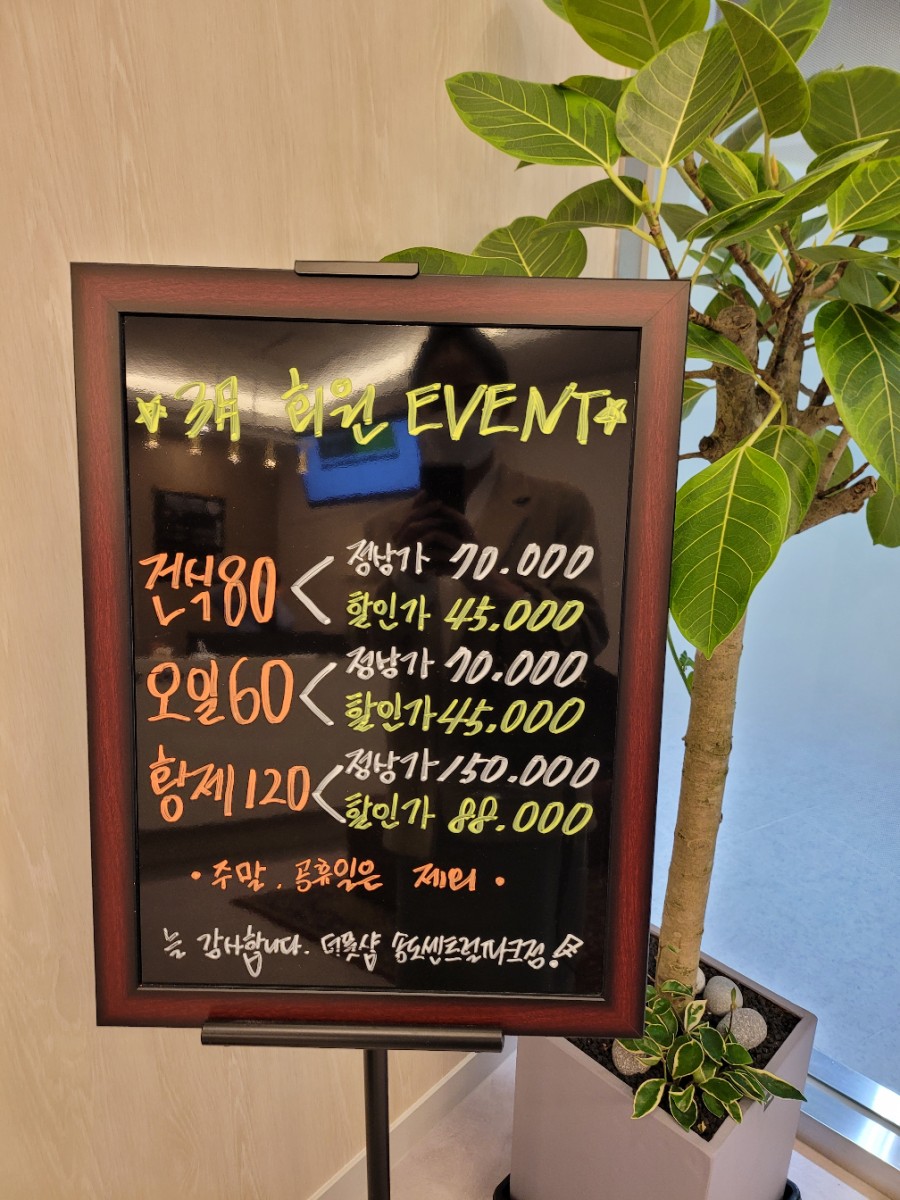 ☆3月 회원 EVENT☆
건식80 < 정상가 70.000
할인가 45.000
오일60 < 정상가 70.000
할인가 45.000
황제120 < 정상가 150.000
할인가 88.000
• 주말, 공휴일은 제외 •
늘 감사합니다. 더풋샵 송도센트럴파크점!